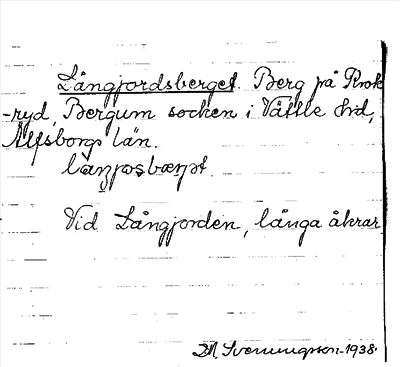 Långjordsberget. Berg på Krok
-ryd, Bergum socken i Vättle hd,
Älfsborgs län.
Vid Långjorden, långa åkrar
Svenungsson 1938